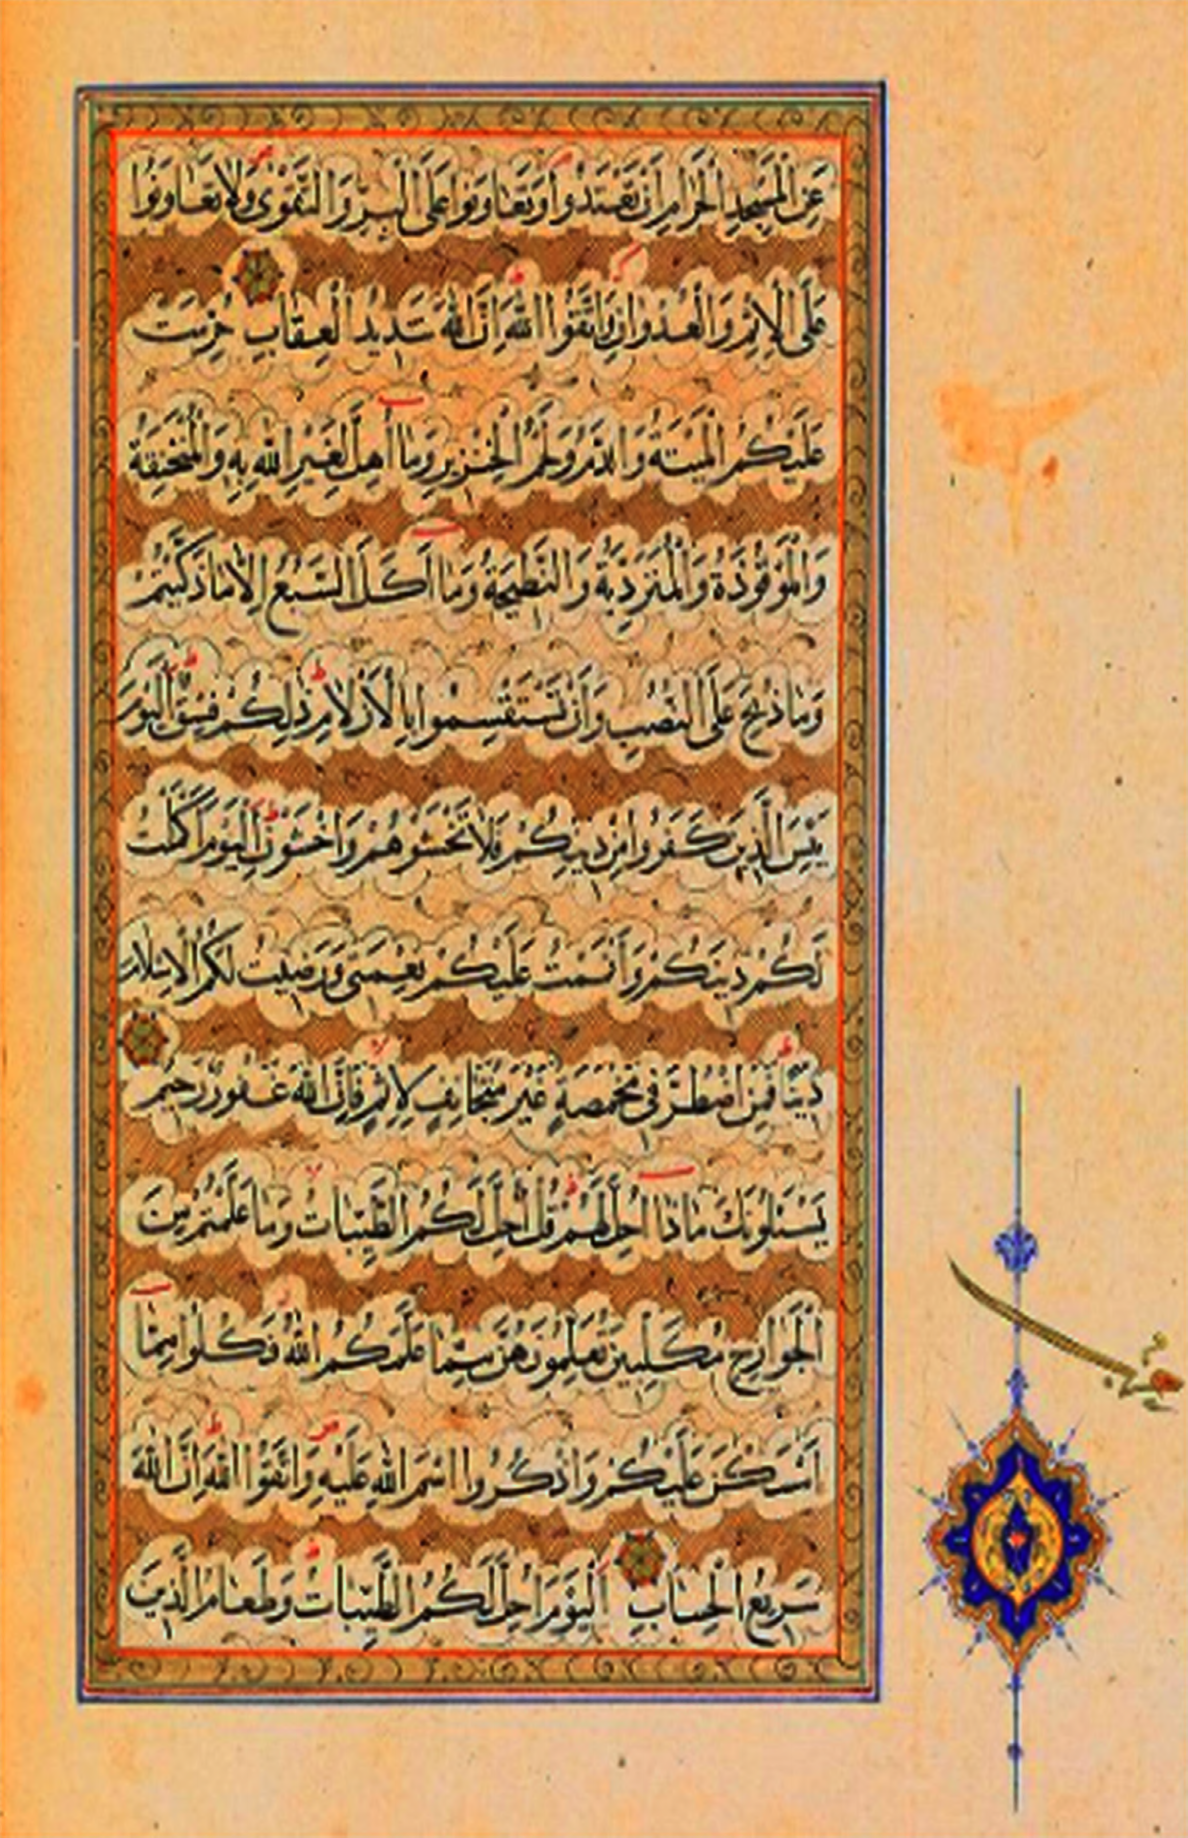 عَنِ الْمَسْجِدِ الْحَرَامِ اَنْ تَعْتَدُوا وَتَعَاوَنُوا عَلَى الْبِرِّ وَالتَّقْوٰى وَلَا تَعَاوَنُوا
عَلَى الْاِثْمِ وَالْعُدْوَانِ وَاتَّقُوا اللّٰهَ اِنَّ اللّٰهَ شَدِيدُ الْعِقَابِ حُرِّمَتْ
عَلَيْكُمُ الْمَيْتَةُ وَالدَّمُ وَلَحْمُ الْخِنْزِيرِ وَمَا اُهِلَّ لِغَيْرِ اللّٰهِ بِهِ وَالْمُنْخَنِقَةُ
وَالْمَوْقُوذَةُ وَالْمُتَرَدِّيَةُ وَالنَّطِيحَةُ وَمَا اَكَلَ السَّبُعُ اِلَّا مَا ذَكَّيْتُمْ
وَمَا ذُبِحَ عَلَى النُّصُبِ وَاَنْ تَسْتَقْسِمُوا بِالْاَزْلَامِ ذٰلِكُمْ فِسْقٌ اَلْيَوْمَ
يَئِسَ الَّذِينَ كَفَرُوا مِنْ دِينِكُمْ فَلَا تَخْشَوْهُمْ وَاخْشَوْنِ اَلْيَوْمَ اَكْمَلْتُ
لَكُمْ دِينَكُمْ وَاَتْمَمْتُ عَلَيْكُمْ نِعْمَتِي وَرَضِيتُ لَكُمُ الْاِسْلَامَ
دِينًا فَمَنِ اضْطُرَّ فِي مَخْمَصَةٍ غَيْرَ مُتَجَانِفٍ لِاِثْمٍ فَاِنَّ اللّٰهَ غَفُورٌ رَحِيمٌ
يَسْئَلُونَكَ مَاذَا اُحِلَّ لَهُمْ قُلْ اُحِلَّ لَكُمُ الطَّيِّبَاتُ وَمَا عَلَّمْتُمْ مِنَ
الْجَوَارِحِ مُكَلِّبِينَ تُعَلِّمُونَهُنَّ مِمَّا عَلَّمَكُمُ اللّٰهُ فَكُلُوا مِمَّا
اَمْسَكْنَ عَلَيْكُمْ وَاذْكُرُوا اسْمَ اللّٰهِ عَلَيْهِ وَاتَّقُوا اللّٰهَ اِنَّ اللّٰهَ
سَرِيعُ الْحِسَابِ اَلْيَوْمَ اُحِلَّ لَكُمُ الطَّيِّبَاتُ وَطَعَامُ الَّذِينَ